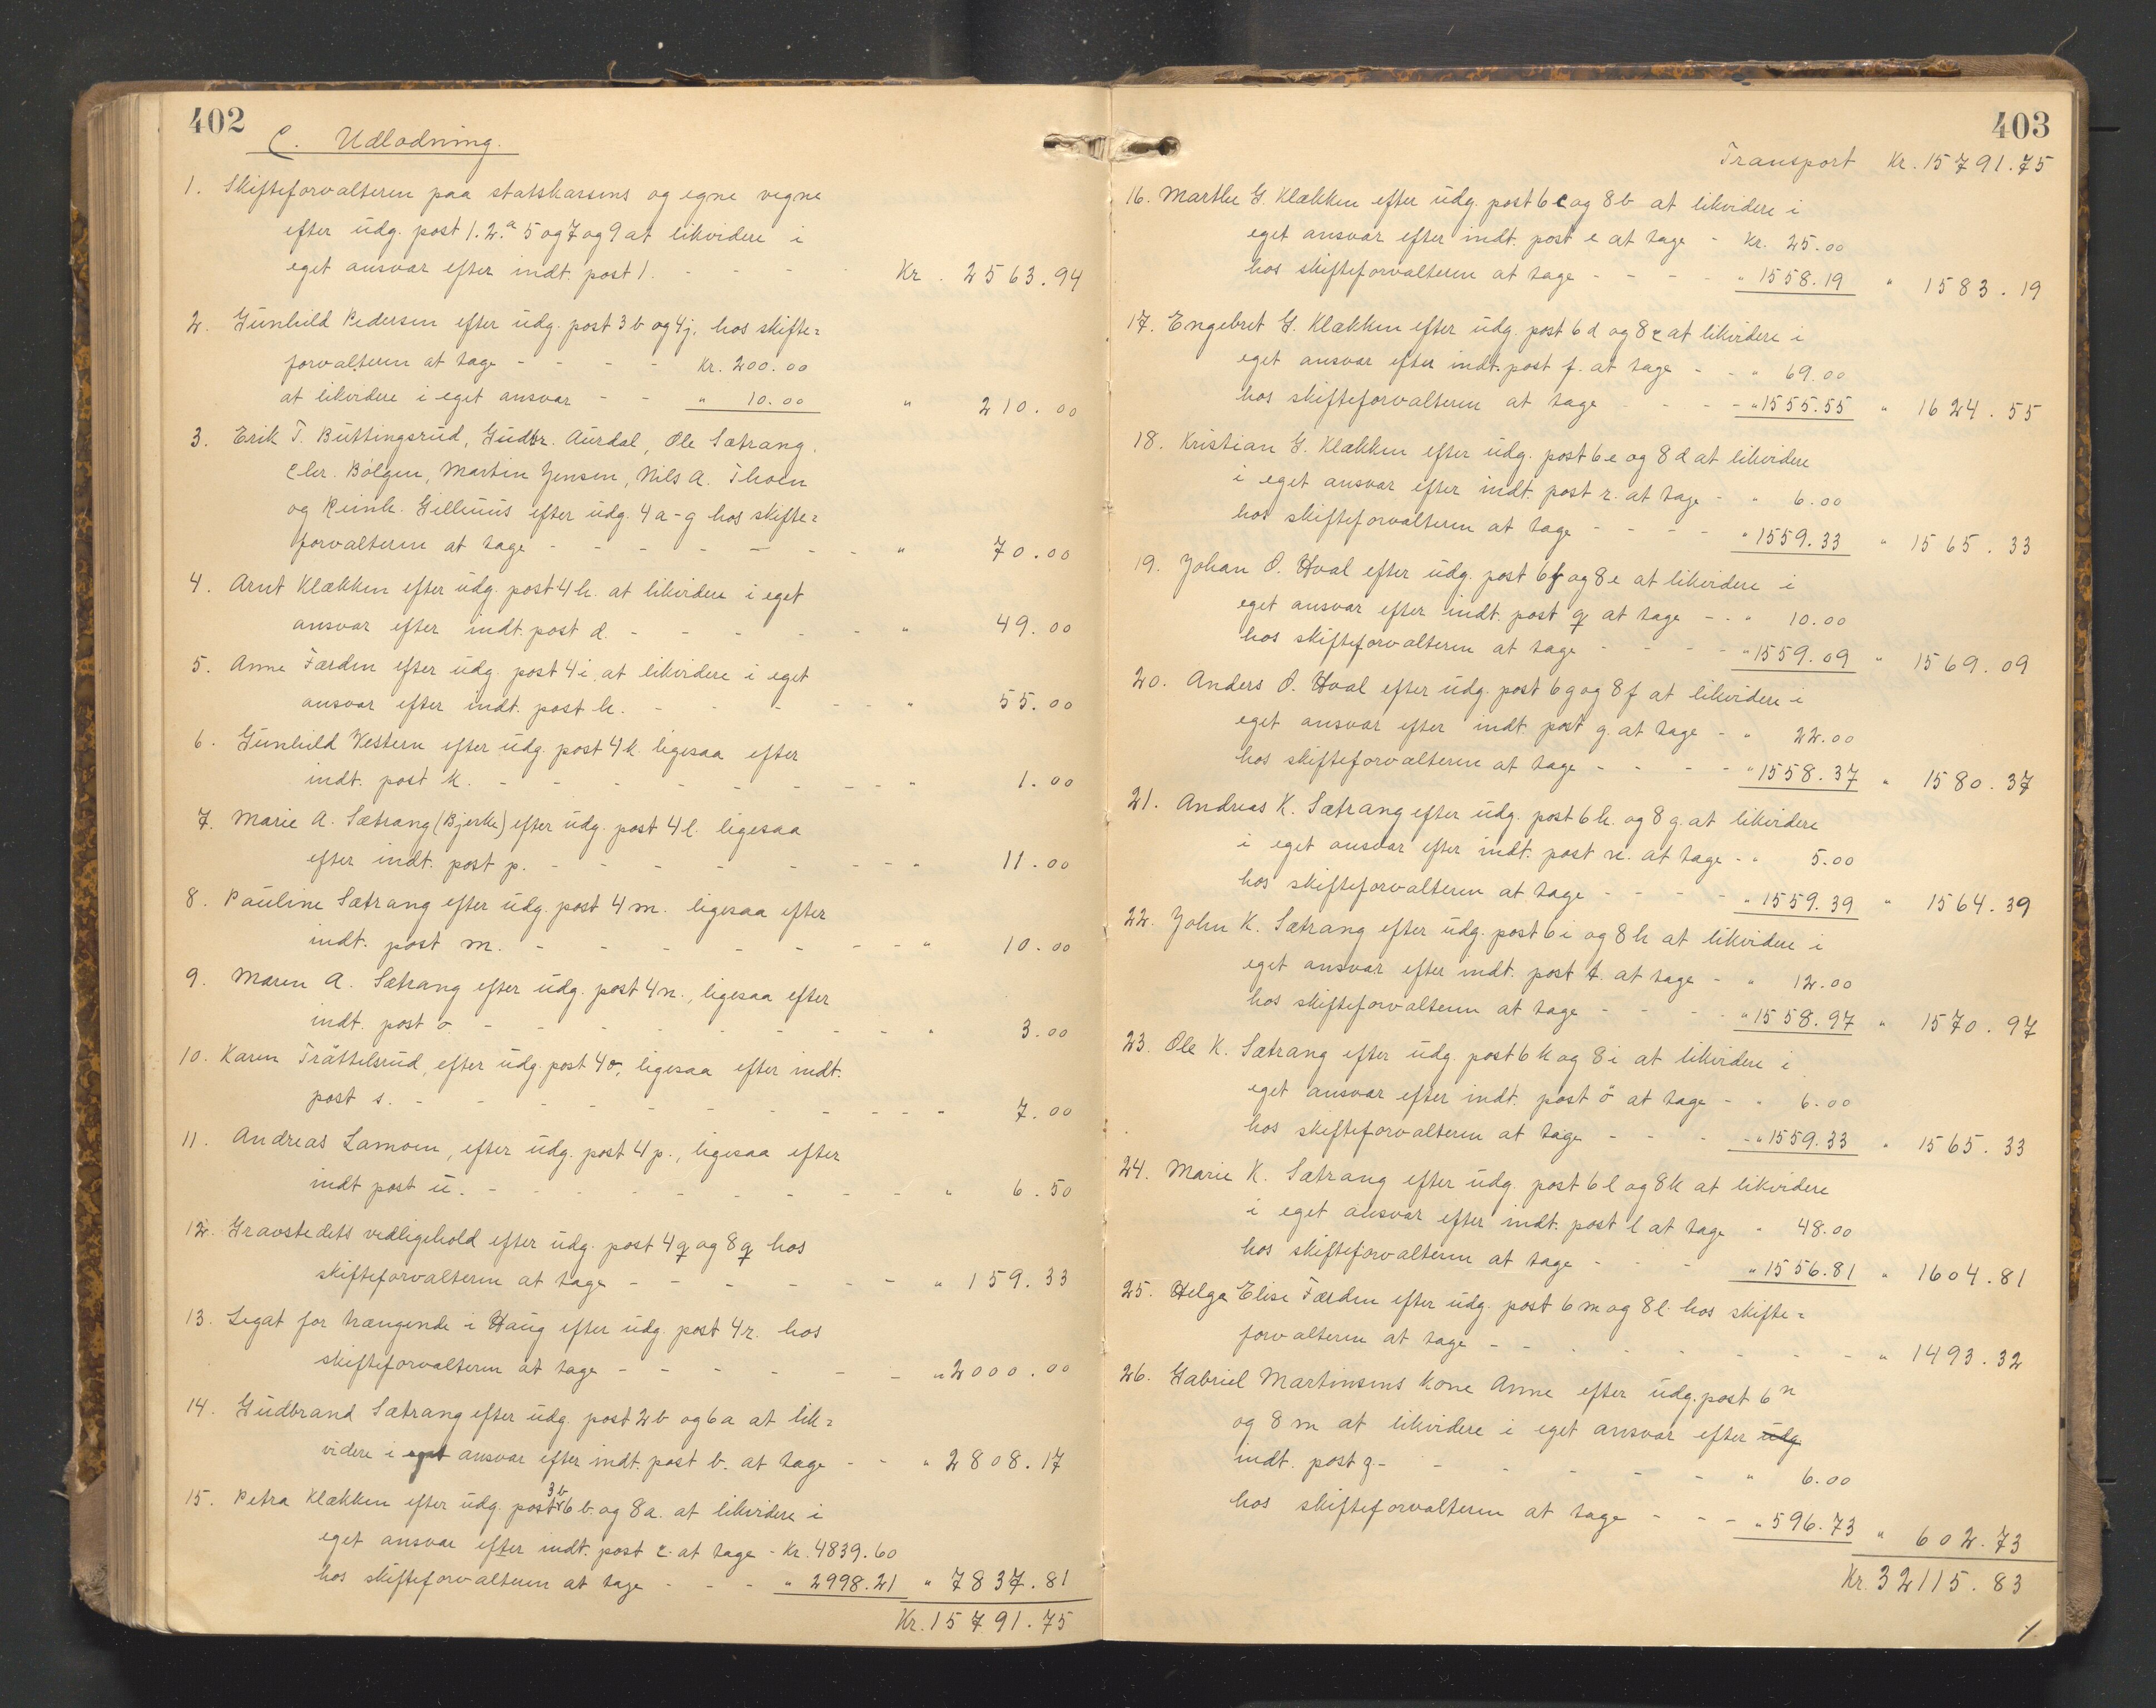 402
C. Udlodning.
1. Skifteforvalteren paa statskassens og egne vegne
efter udg. post 1. 2.a 5 og 7 og 9 at likvidere i
eget ansvar efter indt. post 1. - - - - Kr. 2563.94
2. Gunhild Pedersen efter udg. post 3 b og 4 j. hos skifte=
forvalteren at tage - - - - Kr. 200.00
at likvidere i eget ansvar - - " 10.00 " 210.00
3. Erik T. Buttingsrud, Gudbr. Aurdal, Ole Sætrang.
Chr. Bölgen, Martin Jensen, Nils A. Thoen
og Reinh. Gillenüs efter udg. 4 a-g hos skifte=
forvalteren at tage - - - - - - - " 70.00
4. Arnt Klækken efter udg. post 4 h. at likvidere i eget
ansvar efter indt. post d. - - - - - " 49.00
5. Anne Færden efter udg. post 4 i. at likvidere i eget
ansvar efter indt. post h. - - - - - " 55.00
6. Gunhild Western efter udg. post 4 k. ligesaa efter
indt. post k. - - - - - - - - " 1.00
7. Marie A. Sætrang (Bjerke) efter udg. post 4 l. ligesaa
efter indt. post p. - - - - - - - - " 11.00
8. Pauline Sætrang efter udg. post 4 m. ligesaa efter
indt. post m. - - - - - - - - " 10.00
9. Maren A. Sætrang efter udg. post 4 n., ligesaa efter
indt. post o - - - - - - - - " 3.00
10. Karen Trättelsrud, efter udg. post 4 o, ligesaa efter indt.
post s. - - - - - - - - - - - 7.00
11. Andreas Lamoen, efter udg. post 4 p., ligesaa efter
indt post u. - - - - - - - - - " 6.50
12. Gravstedets vedligehold efter udg. post 4 q og 8 q hos
skifteforvalteren at tage - - - - - - " 159.33
13. Legat for trængende i Haug efter udg. post 4 r. hos
skifteforvalteren at tage - - - - - - " 2000.00
14. Gudbrand Sætrang efter udg. post 2 b og 6 a at lik=
videre i eget ansvar efter indt. post b. at tage - - " 2808.17
15. Petra Klækken efter udg. post 3 b 6 b. og 8 a. at likvidere i
eget ansvar efter indt. post c. at tage - Kr. 4839.60
hos skifteforvalteren at tage - - - " 2998.21 " 7837.81
Kr. 15791.75
403
Transport Kr. 15791.75
16. Marthe G. Klækken efter udg. post 6 c og 8 b at likvidere i
eget ansvar efter indt. post e at tage - Kr. 25.00
hos skifteforvalteren at tage - - - - " 1558.19 " 1583.19
17. Engebret G. Klækken efter udg. post 6 d og 8 c at likvidere i
eget ansvar efter indt. post f. at tage - - " 69.00
hos skifteforvalteren at tage - - - - " 1555.55 " 1624.55
18. Kristian G. Klækken efter udg. post 6 e og 8 d at likvidere
i eget ansvar efter indt. post r. at tage - " 6.00
hos skifteforvalteren at tage - - - - " 1559.33 " 1565.33
19. Johan O. Hval efter udg. post 6 f og 8 e at likvidere i
eget ansvar efter indt. post q at tage - - " 10.00
hos skifteforvalteren at tage - - - - " 1559.09 " 1569.09
20. Anders O. Hval efter udg. post 6 g og 8 f at likvidere i
eget ansvar efter indt. post g. at tage - " 22.00
hos skifteforvalteren at tage - - - - " 1558.37 " 1580.37
21. Andreas K. Sætrang efter udg. post 6 h. og 8 g. at likvidere
i eget ansvar efter indt. post n. at tage - " 5.00
hos skifteforvalteren at tage - - - - " 1559.39 " 1564.39
22. John K. Sætrang efter udg. post 6 i og 8 h at likvidere i
eget ansvar efter indt. post t. at tage - " 12.00
hos skifteforvalteren at tage - - - - " 1558.97 " 1570.97
23. Ole K. Sætrang efter udg. post 6 k og 8 i at likvidere i
eget ansvar efter indt. post ö at tage - " 6.00
hos skifteforvalteren at tage - - - - " 1559.33 " 1565.33
24. Marie K. Sætrang efter udg. post 6 l og 8 k at likvidere
i eget ansvar efter indt. post l at tage " 48.00
hos skifteforvalteren at tage - - - " 1556.81 " 1604.81
25. Helga Elise Færden efter udg. post 6 m og 8 l. hos skifte=
forvalteren at tage - - - - - - - - " 1493.32
26. Gabriel Martinsens Kone Anne efter udg. post 6 n
og 8 m at likvidere i eget ansvar efter udg.
indt. post z - - - - - - " 6.00
hos skifteforvalteren at tage - - - " 596.73 " 602.73
Kr. 32115.83